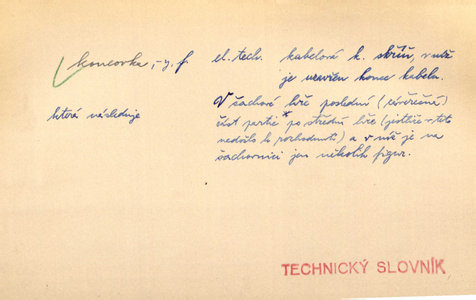 koncovka, -y, f. el. tech. kabelová k. skříň, v níž
je uzavřen konec kabelu.
V šachové hře poslední (závěrečná)
která následuje
část partie * po střední hře (jestliže v této
nedošlo k rozhodnutí) a v níž je na
šachovnici jen několik figur.
TECHNICKÝ SLOVNÍK